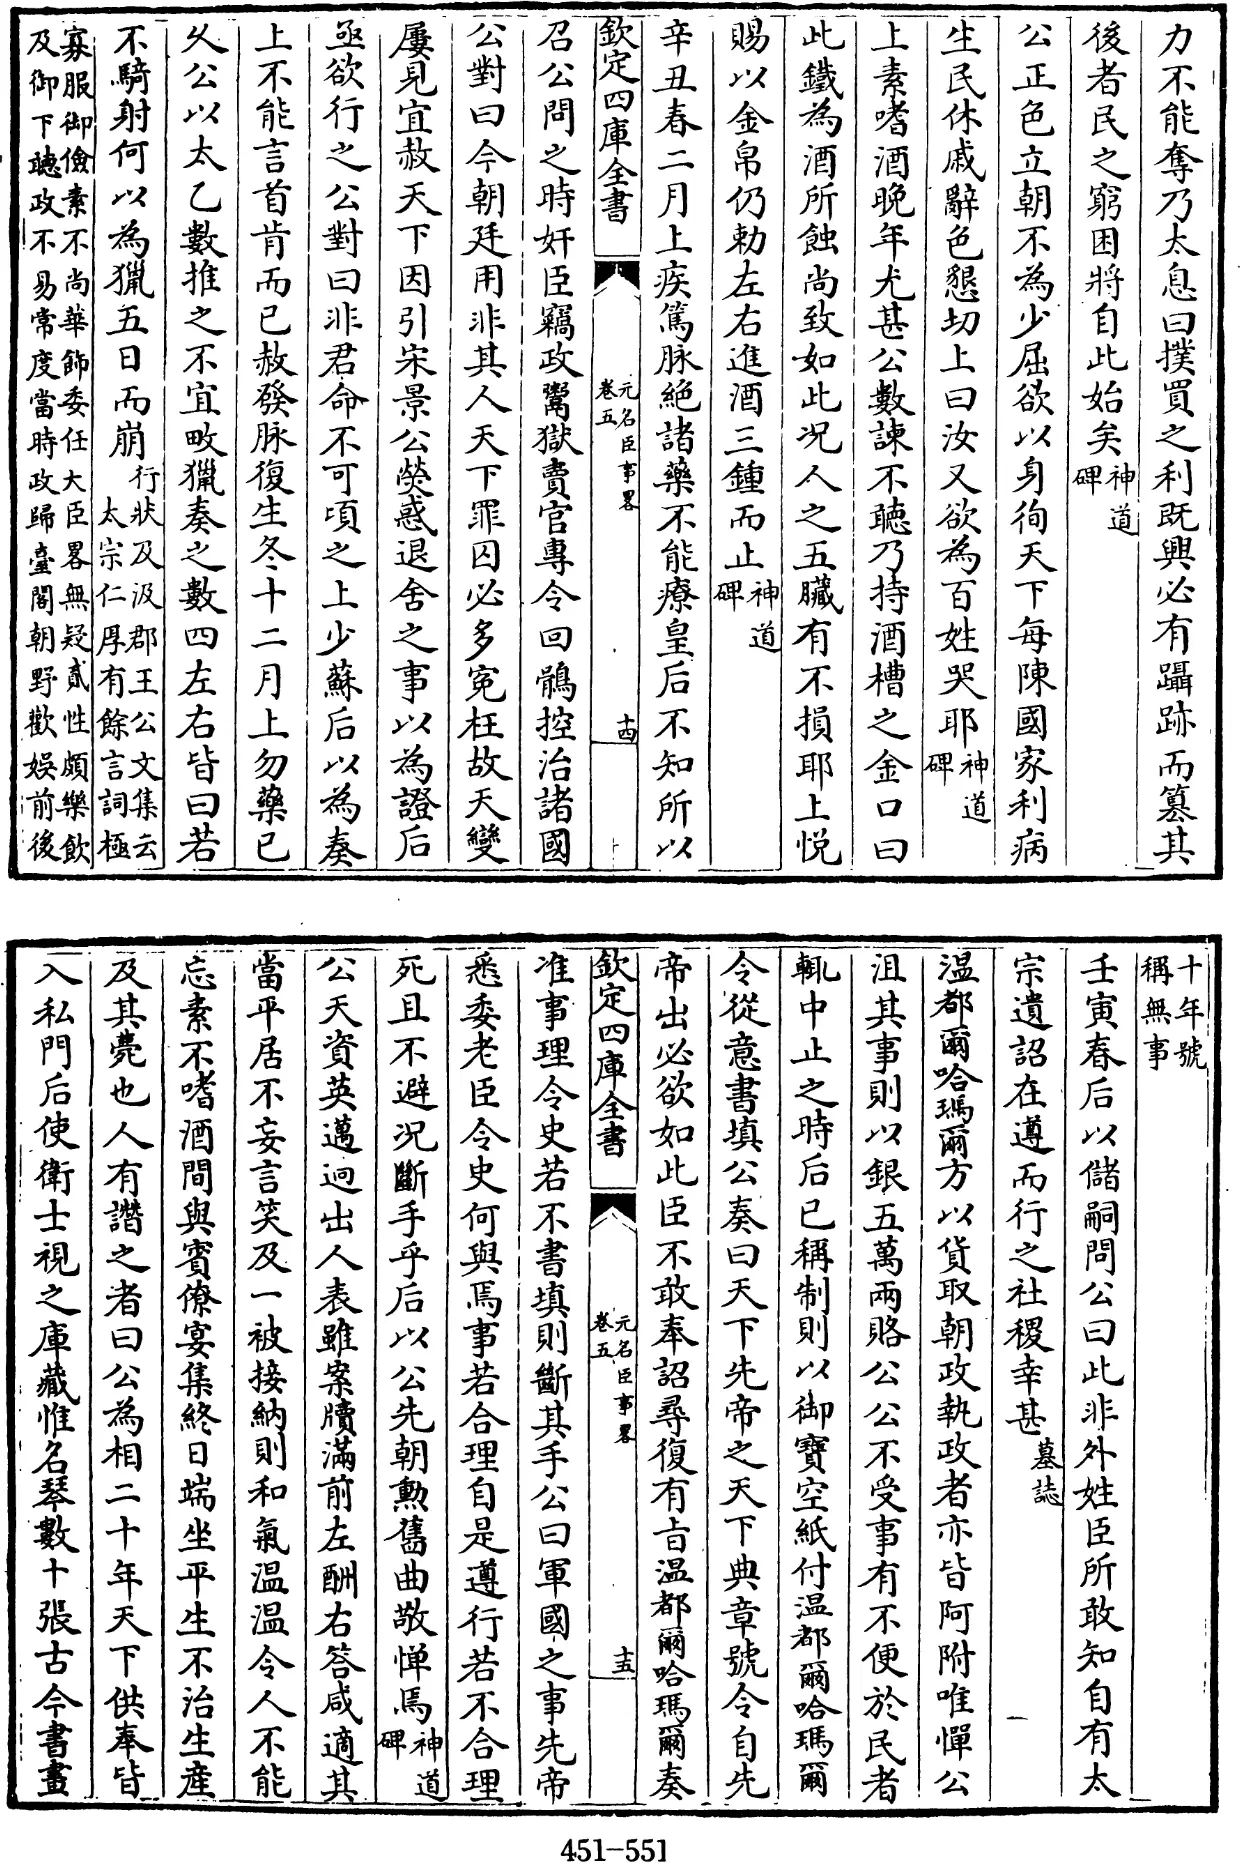 力不能奪乃太息曰撲買之利既興必有躡跡而篡其
後者民之窮困將自此始矣神道碑
公正色立朝不為少屈欲以身徇天下每陳國家利病
生民休戚辭色懇切上曰汝又欲為百姓哭耶神道碑
上素嗜酒晚年尤甚公數諫不聽乃持酒槽之金口曰
此鐵為酒所蝕尚致如此况人之五臟有不損耶上悦
賜以金帛仍勅左右進酒三鍾而止神道碑
辛丑春二月上疾篤脉絶諸藥不能療皇后不知所以
欽定四庫全書
元名臣事畧
卷五
十四
召公問之時奸臣竊政鬻獄賣官專令回鶻控治諸國
公對曰今朝廷用非其人天下罪囚必多寃枉故天變
屢見宜赦天下因引宋景公熒惑退舍之事以為證后
亟欲行之公對曰非君命不可頃之上少蘇后以為奏
上不能言首肯而已赦發脉復生冬十二月上勿藥已
久公以太乙數推之不宜畋獵奏之數四左右皆曰若
不騎射何以為獵五日而崩行狀及汲郡王公文集云
太宗仁厚有餘言詞極
寡服御儉素不尚華飾委任大臣畧無疑貳性頗樂飲
及御下聽政不易常度當時政歸臺閣朝野歡娛前後
十年號
稱無事
壬寅春后以儲嗣問公曰此非外姓臣所敢知自有太
宗遺詔在遵而行之社稷幸甚墓誌
温都爾哈瑪爾方以貨取朝政執政者亦皆阿附唯憚公
沮其事則以銀五萬兩賂公公不受事有不便於民者
輒中止之時后已稱制則以御寶空紙付温都爾哈瑪爾
令從意書填公奏曰天下先帝之天下典章號令自先
帝出必欲如此臣不敢奉詔尋復有旨温都爾哈瑪爾奏
欽定四庫全書
元名臣事畧
卷五
十五
准事理令史若不書填則斷其手公曰軍國之事先帝
悉委老臣令史何與焉事若合理自是遵行若不合理
死且不避况斷手乎后以公先朝勲舊曲敬憚焉神道碑
公天資英邁迥出人表雖案牘滿前左酬右答咸適其
當平居不妄言笑及一被接納則和氣温温令人不能
忘素不嗜酒間與賓僚宴集終日端坐平生不治生産
及其薨也人有譖之者曰公為相二十年天下供奉皆
入私門后使衛士視之庫藏惟名琴數十張古今書畫
451-551